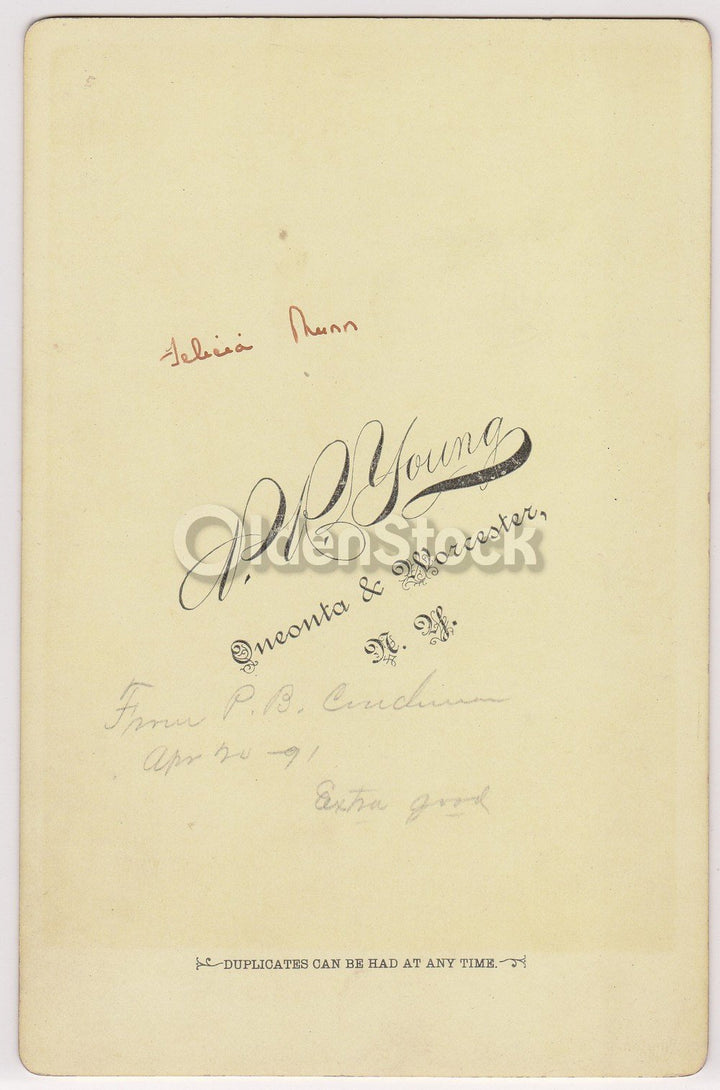 Felicia Munn
P. B. Young
OldenStock
Oneonta & Worcester,
N. Y.
From P. B.
Apr 20 - 91
Extra good
DUPLICATES CAN BE HAD AT ANY TIME.